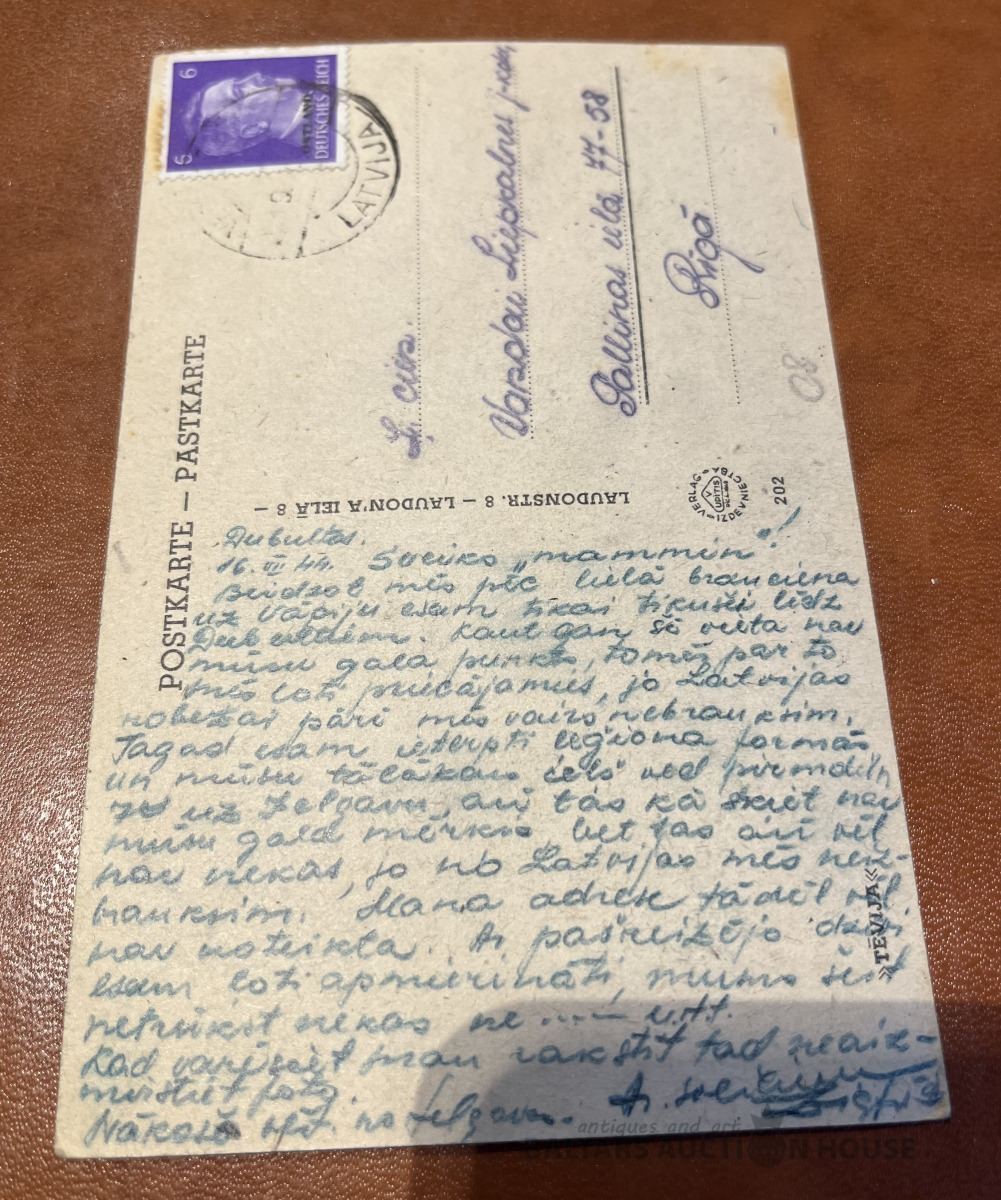 6 6
OSTLAND
DEUTSCHES REICH
LATVIJA
POSTKARTE — PASTKARTE
L. cien.
Liepkalnes j-kdze,
Tallinas ielā 77-58
Rīgā
LAUDONSTR. 8 — LAUDON'A IELĀ 8 —
VERLAG
UPITIS
IZDEVNIECĪBA
202
08
Dubultos.
16. VII 44. Sveiks „mammiņ"!
Beidzot mēs pēc lielā brauciena
uz Vāciju esam tikai tikuši līdz
Dubultiem. Kaut gan šī vieta nav
mūsu gala punkts, tomēr par to
mēs ļoti priecājamies, jo Latvijas
robežai pāri mēs vairs nebrauksim.
Tagad esam ieterpti leģiona formās
un mūsu tālākais ceļš ved pirmdien
uz Jelgavu, arī tas kā šķiet nav
mūsu gala mērķis bet tas arī vēl
nav nekas, jo no Latvijas mēs neiz-
brauksim. Mana adrese tādēļ vēl
nav noteikta. Ar pašreizējo dzīvi
esam ļoti apmierināti, mums šeit
netrūkst nekas ne ..... utt.
Kad varēsiet man rakstīt tad neaiz-
mirstiet foto.
Nākošā vēst. no Jelgavas. Ar sveicienu
»TĒVIJA«
antiques and art
BALTARS AUCTION HOUSE